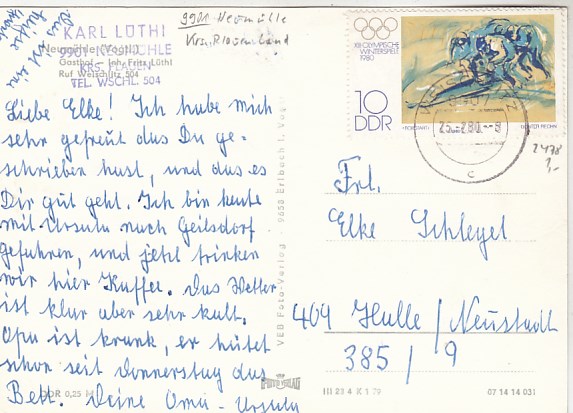 KARL LÜTHI
9901 NEUMÜHLE
KRS. PLAUEN
TEL. WSCHL. 504
Neumühle (Vogtl.)
Gasthof – Inh. Fritz Lüthi
Ruf Weischlitz 504
9901 Neumühle
Krs. Plauen Land
Das ist uns
Liebe Elke! Ich habe mich
sehr gefreut das Du ge-
schrieben hast, und das es
Dir gut geht. Ich bin heute
mit Ursula nach Geilsdorf
gefahren, und jetzt trinken
wir hier Kaffee. Das Wetter
ist klar aber sehr kalt.
Opa ist krank, er hütet
schon seit Donnerstag das
Bett. Deine Oma - Ursula
DDR 0,25 M
VEB Foto-Verlag 9658 Erlbach i. Vogtl.
FOTO VERLAG
XIII. OLYMPISCHE
WINTERSPIELE
1980
10
DDR
25.-2.80.-8
c
2478
Frl.
Elke Schlegel
409 Halle / Neustadt
385 / 9
III 23 4 K 1 79
07 14 14 031